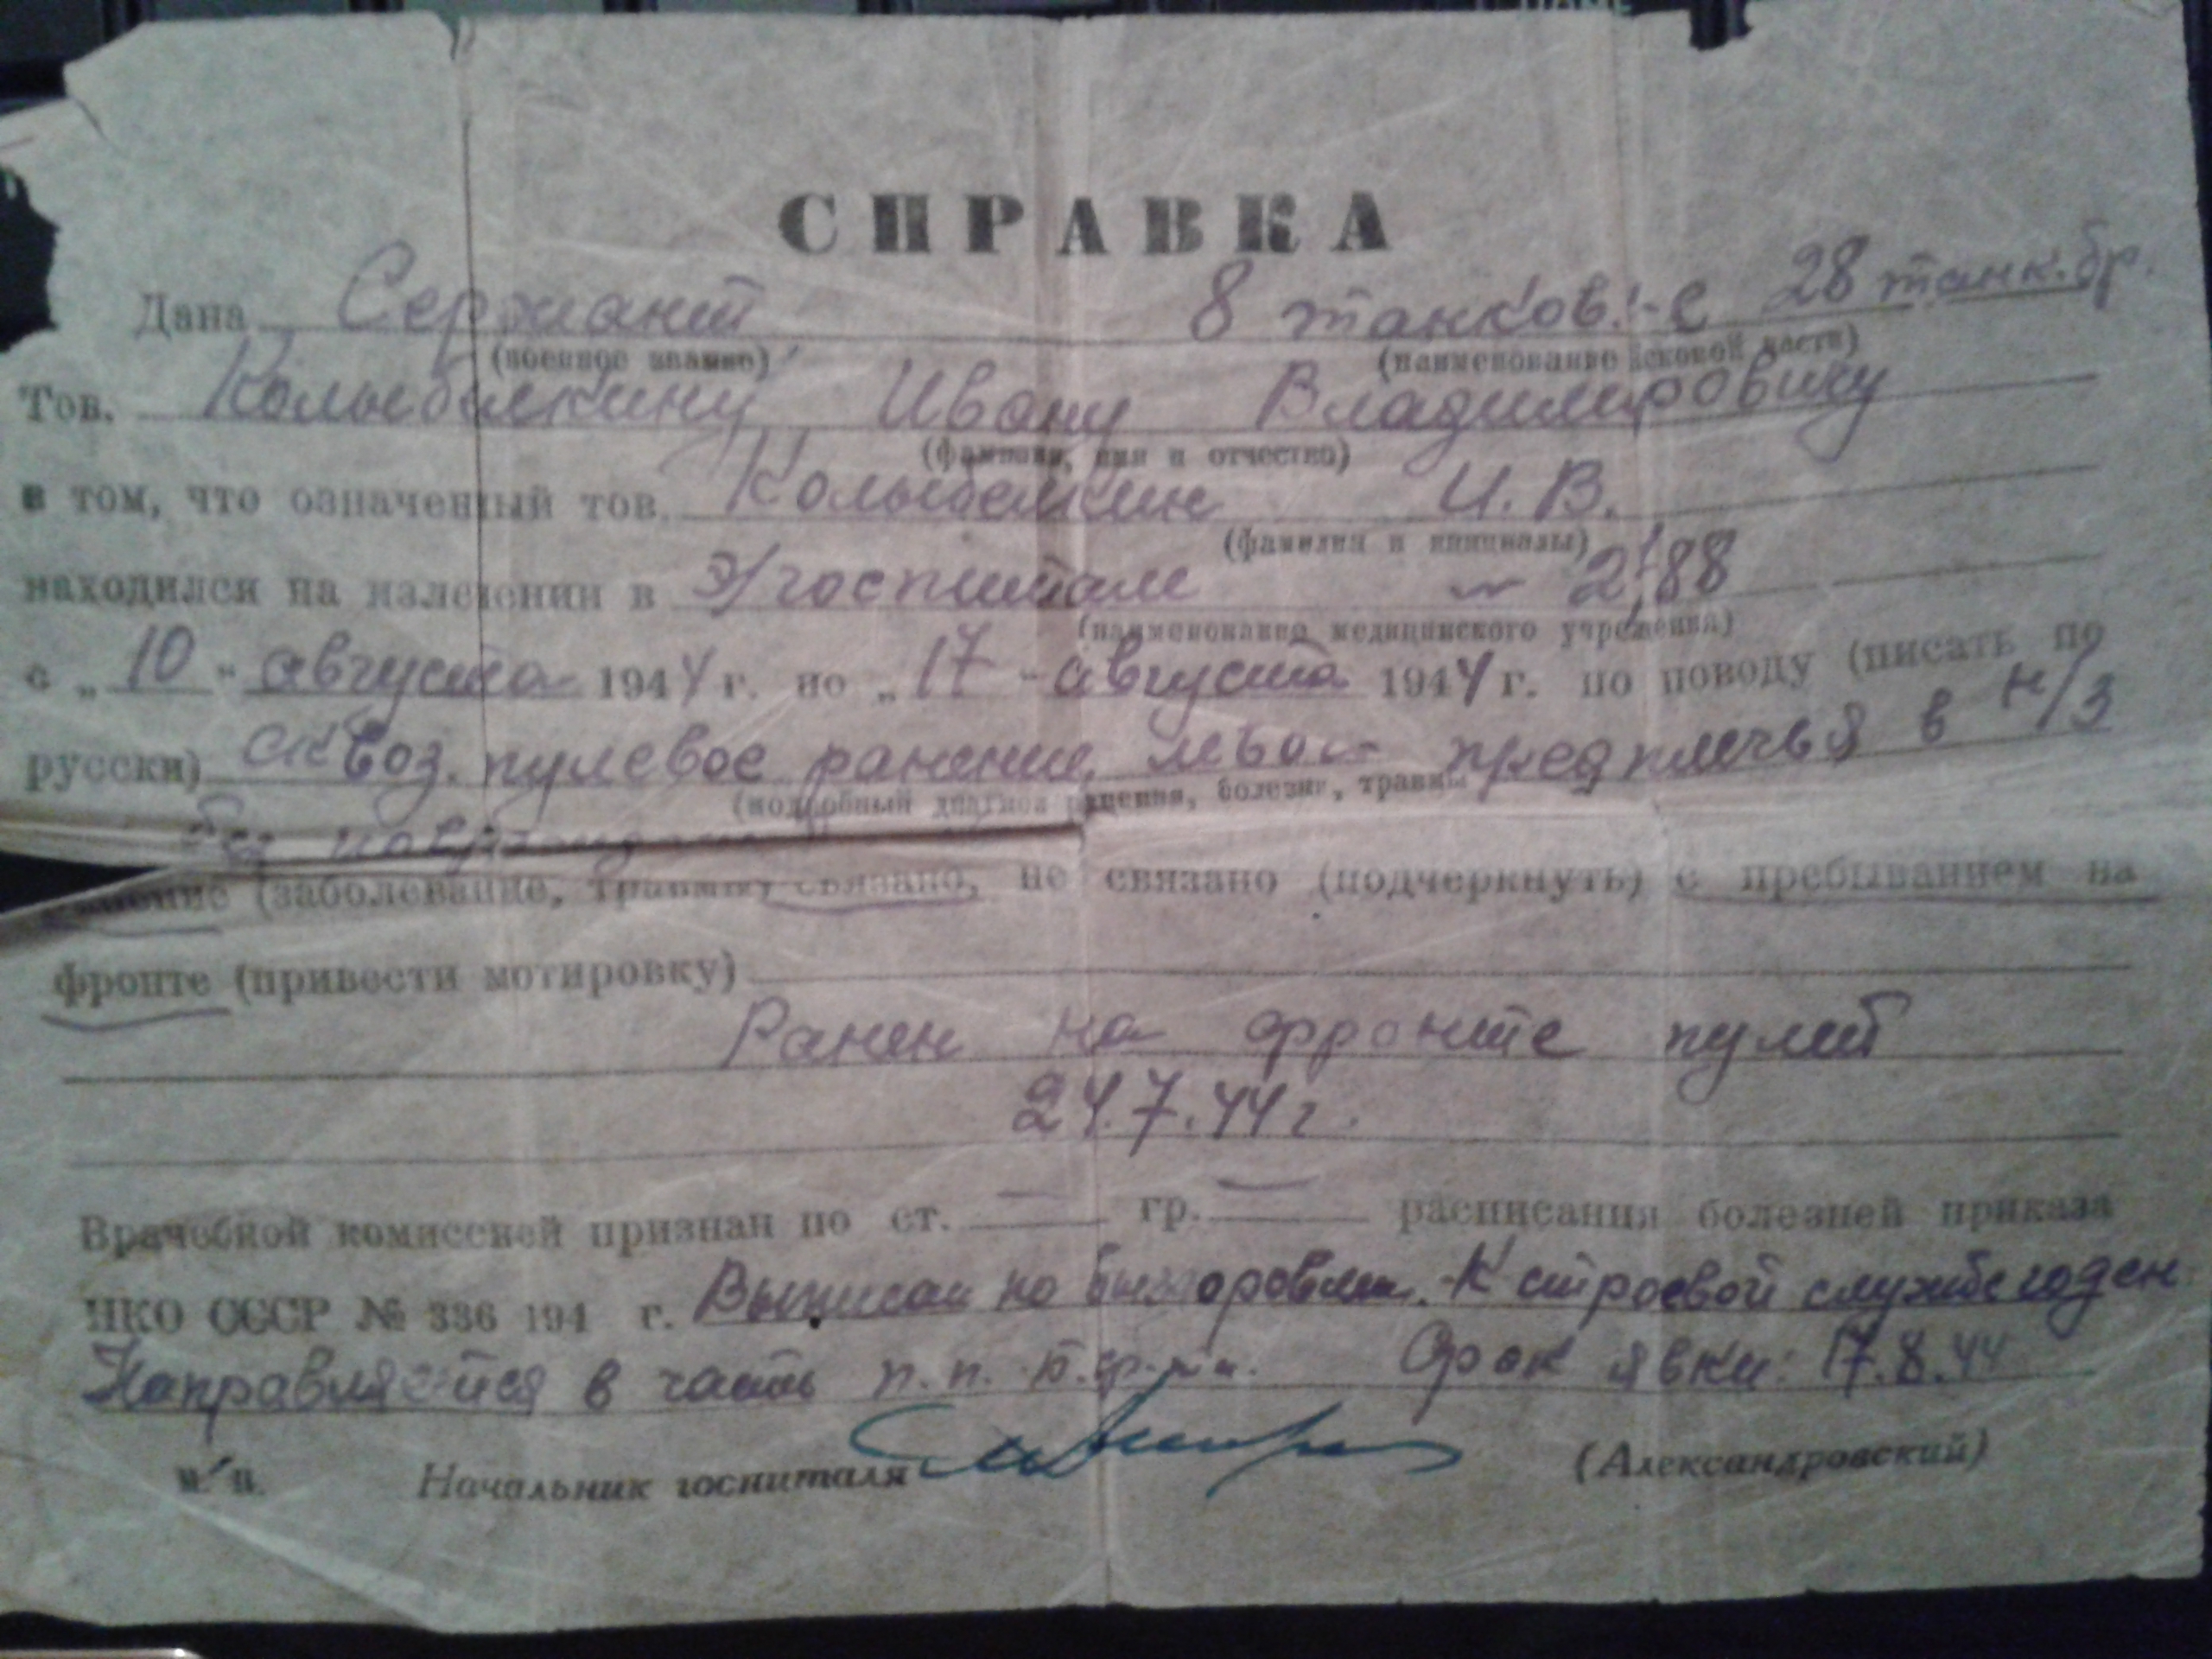 СПРАВКА
Дана Сержант 8 танков. 28 танк.бр.
(военное звание) (наименование сковой части)
Тов. Колыбелкину Ивану Владимировичу
(фамилия, имя и отчество)
в том, что означенный тов. Колыбелкин И. В.
(фамилия и инициалы)
находился на излечении в э/госпитале 2188
(наименование медицинского учреждения)
с „10“ августа 1944 г. по „17“ августа 1944 г. по поводу (писать по
русски) сквоз. пулевое ранение предплечья в н/3
(подробный диагноз ранения, болезни, травмы
без
(заболевание, травма) связано, не связано (подчеркнуть) с пребыванием на
фронте (привести мотировку)
Ранен на фронте пулей
24.7.44 г.
Врачебной комиссией признан по ст. — гр. — расписания болезней приказа
НКО СССР № 336 194 г. Выписан по выздоровлен. К строевой службе годен
Направляется в часть п.п. Срок явки: 17.8.44
м. п. Начальник госпиталя (Александровский)